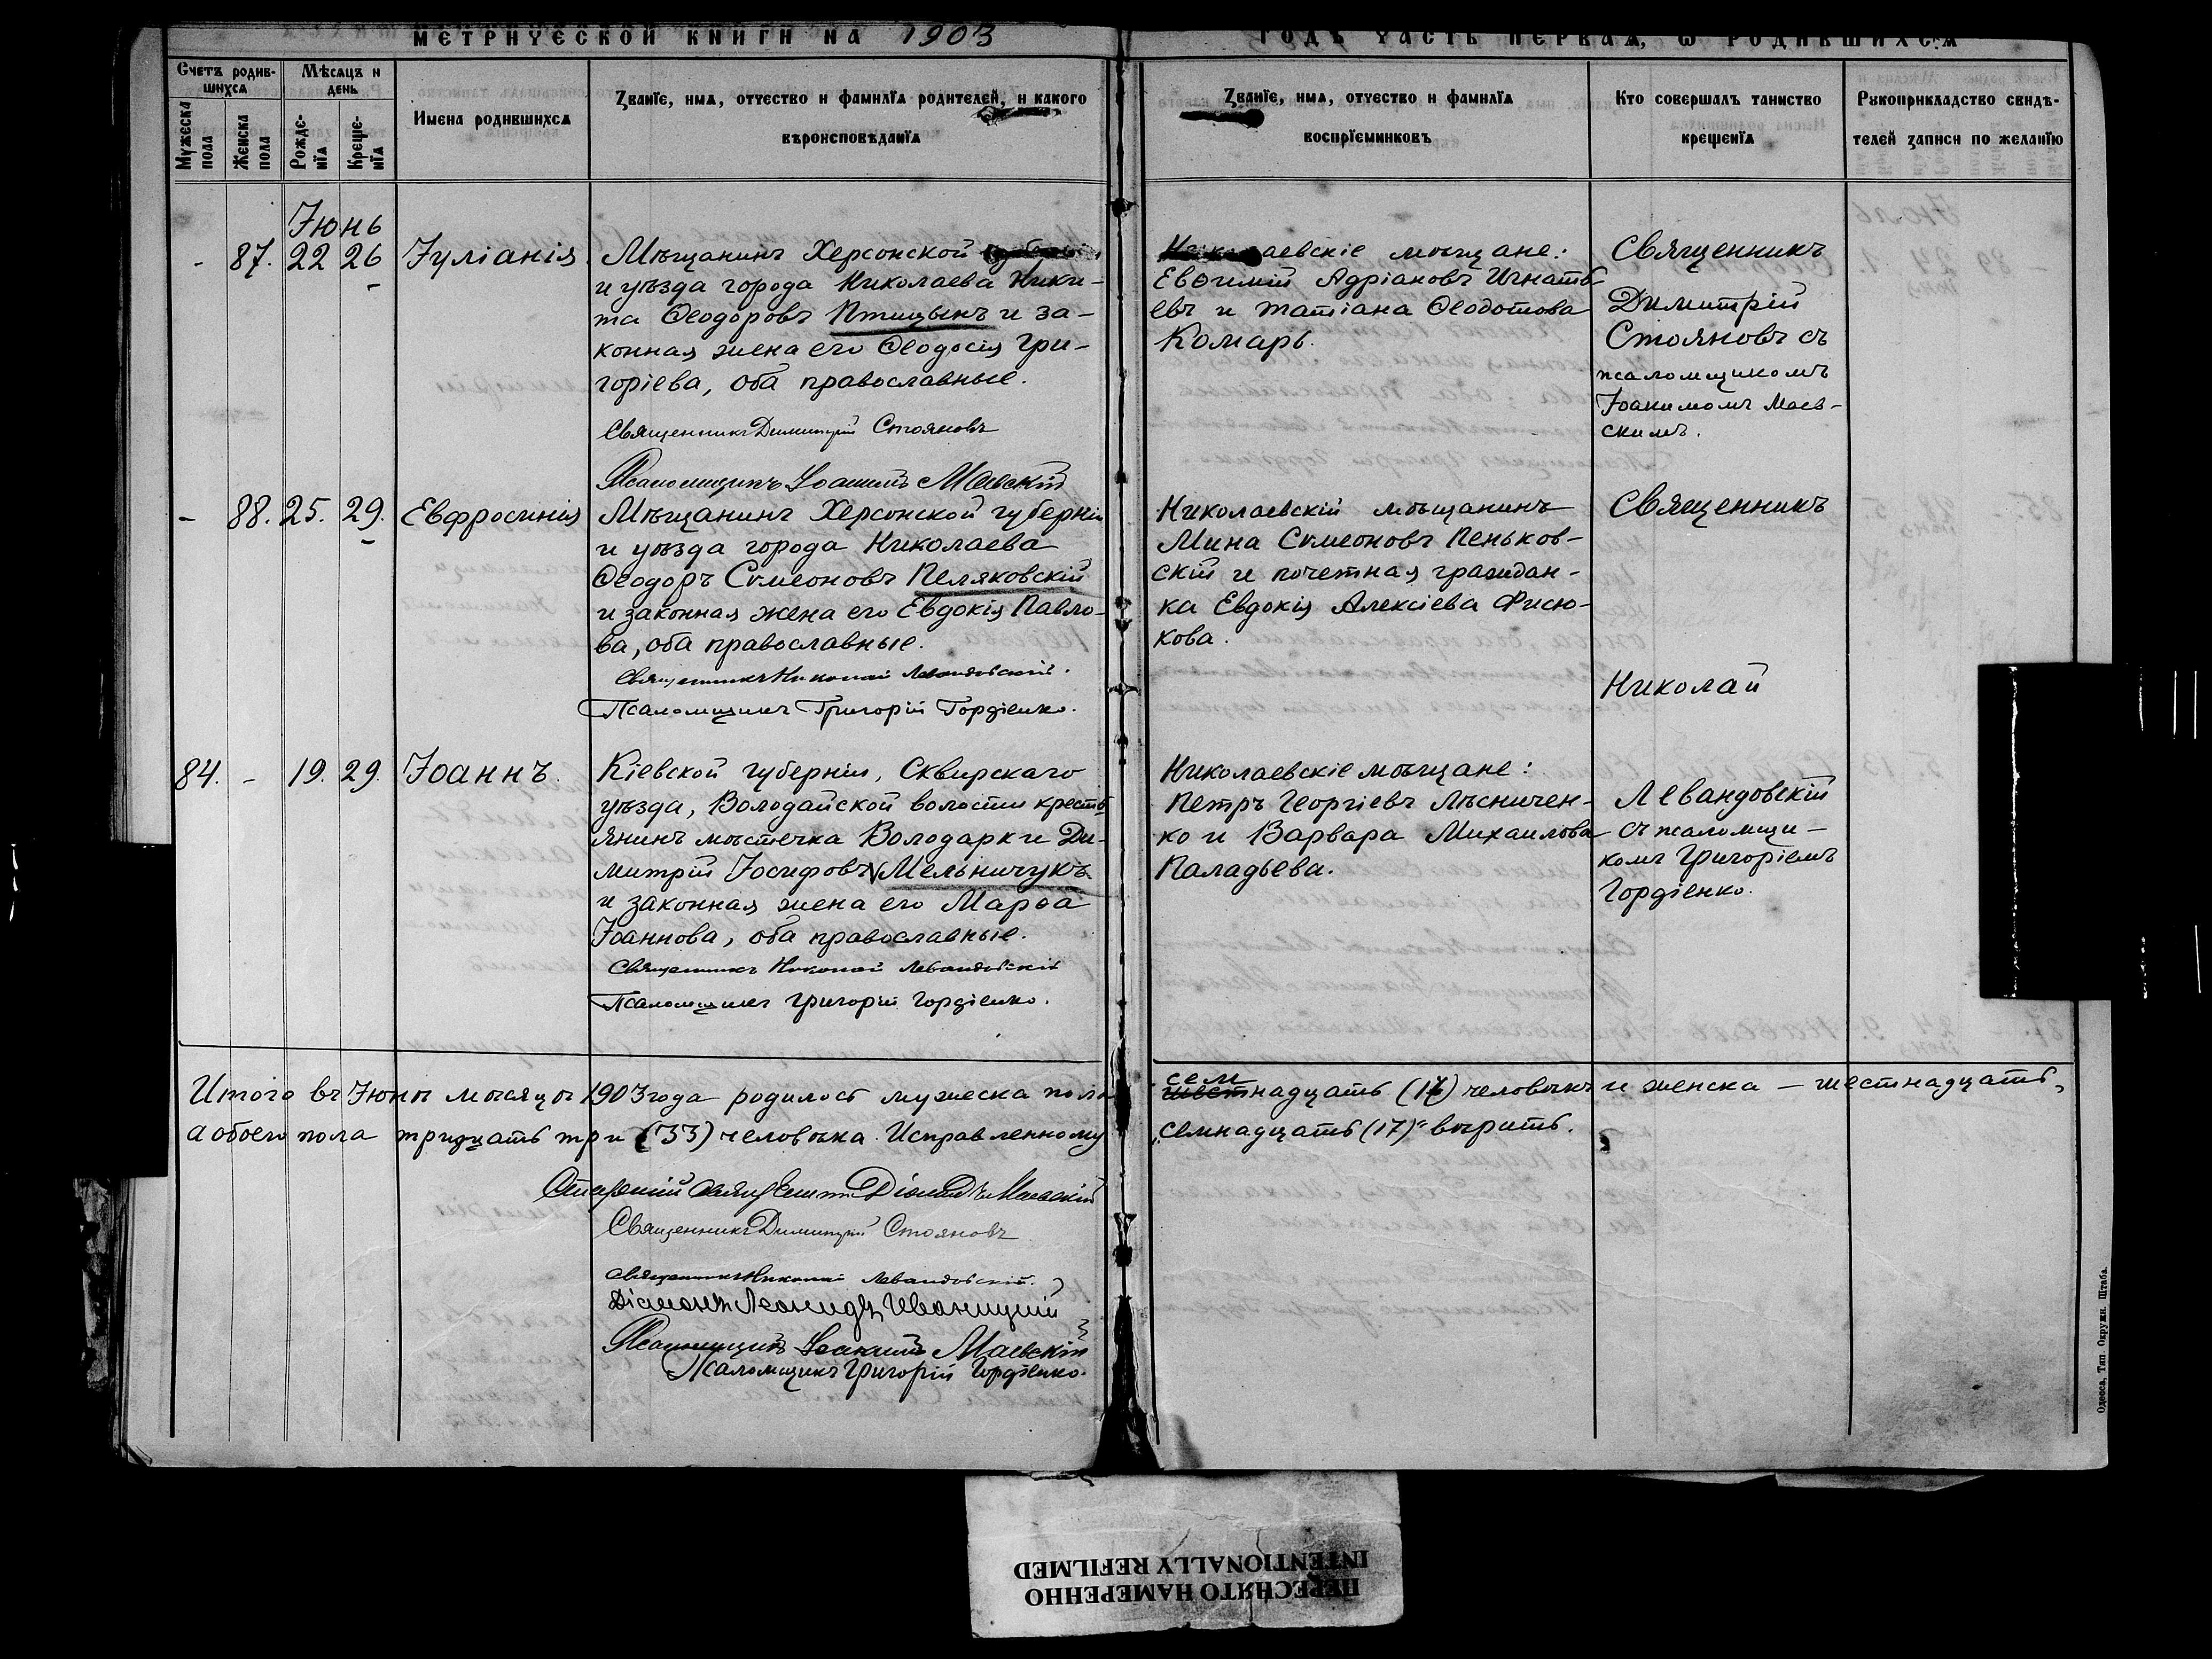 МЕТРИЧЕСКОЙ КНИГИ НА 1903
ГОДЪ ЧАСТЬ ПЕРВАЯ, Ѡ РОДИВШИХСЯ
Счетъ родив-
шихся
Мѣсяцъ и
день
Мужеска
пола
Женска
пола
Рожде-
нїя
Креще-
нїя
Имена родившихся
Званїе, имя, отчество и фамилїя родителей, и какого
вѣроисповѣданїя
Званїе, имя, отчество и фамилїя
воспрїемниковъ
Кто совершалъ таинство
крещенїя
Рукоприкладство свидѣ-
телей записи по желанїю
Іюнь
- 87. 22 26 Іуліанія
Мѣщанинъ Херсонской губерніи
и уѣзда города Николаева Ники-
та Ѳеодоровъ Птицынъ и за-
конная жена его Ѳеодосія Гри-
горіева, оба православные.
Священникъ Димитрій Стояновъ
Псаломщикъ Іоакимъ Маевскій
Николаевскіе мѣщане:
Евѳимій Адріановъ Игнать-
евъ и Татіана Ѳеодотова
Комарь.
Священникъ
Димитрій
Стояновъ съ
псаломщикомъ
Іоакимомъ Маев-
скимъ.
- 88. 25. 29. Евфросинія
Мѣщанинъ Херсонской губерніи
и уѣзда города Николаева
Ѳеодоръ Сѵмеоновъ Пеляковскій
и законная жена его Евдокія Павло-
ва, оба православные.
Священникъ Николай Левандовскій.
Псаломщикъ Григорій Гордіенко.
Николаевскій мѣщанинъ
Мина Сѵмеоновъ Пеньков-
скій и почетная граждан-
ка Евдокія Алексіева Фисю-
кова.
Священникъ
Николай
84. - 19. 29. Іоаннъ.
Кіевской губерніи, Сквирскаго
уѣзда, Володайской волости кресть-
янинъ мѣстечка Володарки Ди-
митрій Іосифовъ Мельничукъ
и законная жена его Марѳа
Іоаннова, оба православные.
Священникъ Николай Левандовскій
Псаломщикъ Григорій Гордіенко.
Николаевскіе мѣщане:
Петръ Георгіевъ Лѣсничен-
ко и Варвара Михаилова
Паладьева.
Левандовскій
съ псаломщи-
комъ Григоріемъ
Гордіенко.
Итого въ Іюнѣ мѣсяцѣ 1903 года родилось мужеска пола
сем
шестнадцать (17) человѣкъ и женска - шестнадцать,
а обоего пола тридцать три (33) человѣка. Исправленному
"семнадцать (17)" вѣрить.
Старшій Священникъ Маевскій
Священникъ Димитрій Стояновъ
Священникъ Николай Левандовскій.
Діаконъ Леонидъ Иваницкій
Псаломщикъ Іоакимъ Маевскій
Псаломщикъ Григорій Гордіенко.
Одесса, Тип. Окружн. Штаба.
ПЕРЕСНЯТО НАМЕРЕННО
INTENTIONALLY REFILMED